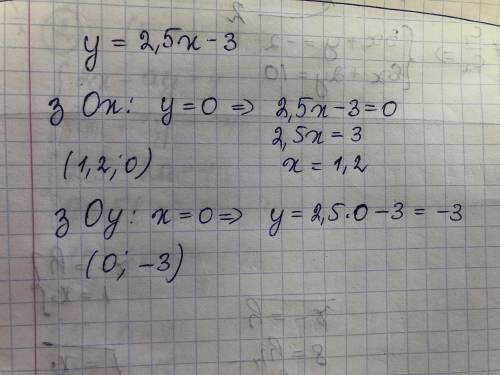 y = 2,5x - 3
з Ox: y = 0 => 2,5x - 3 = 0
2,5x = 3
(1,2; 0) x = 1,2
з Oy: x = 0 => y = 2,5·0 - 3 = -3
(0; -3)